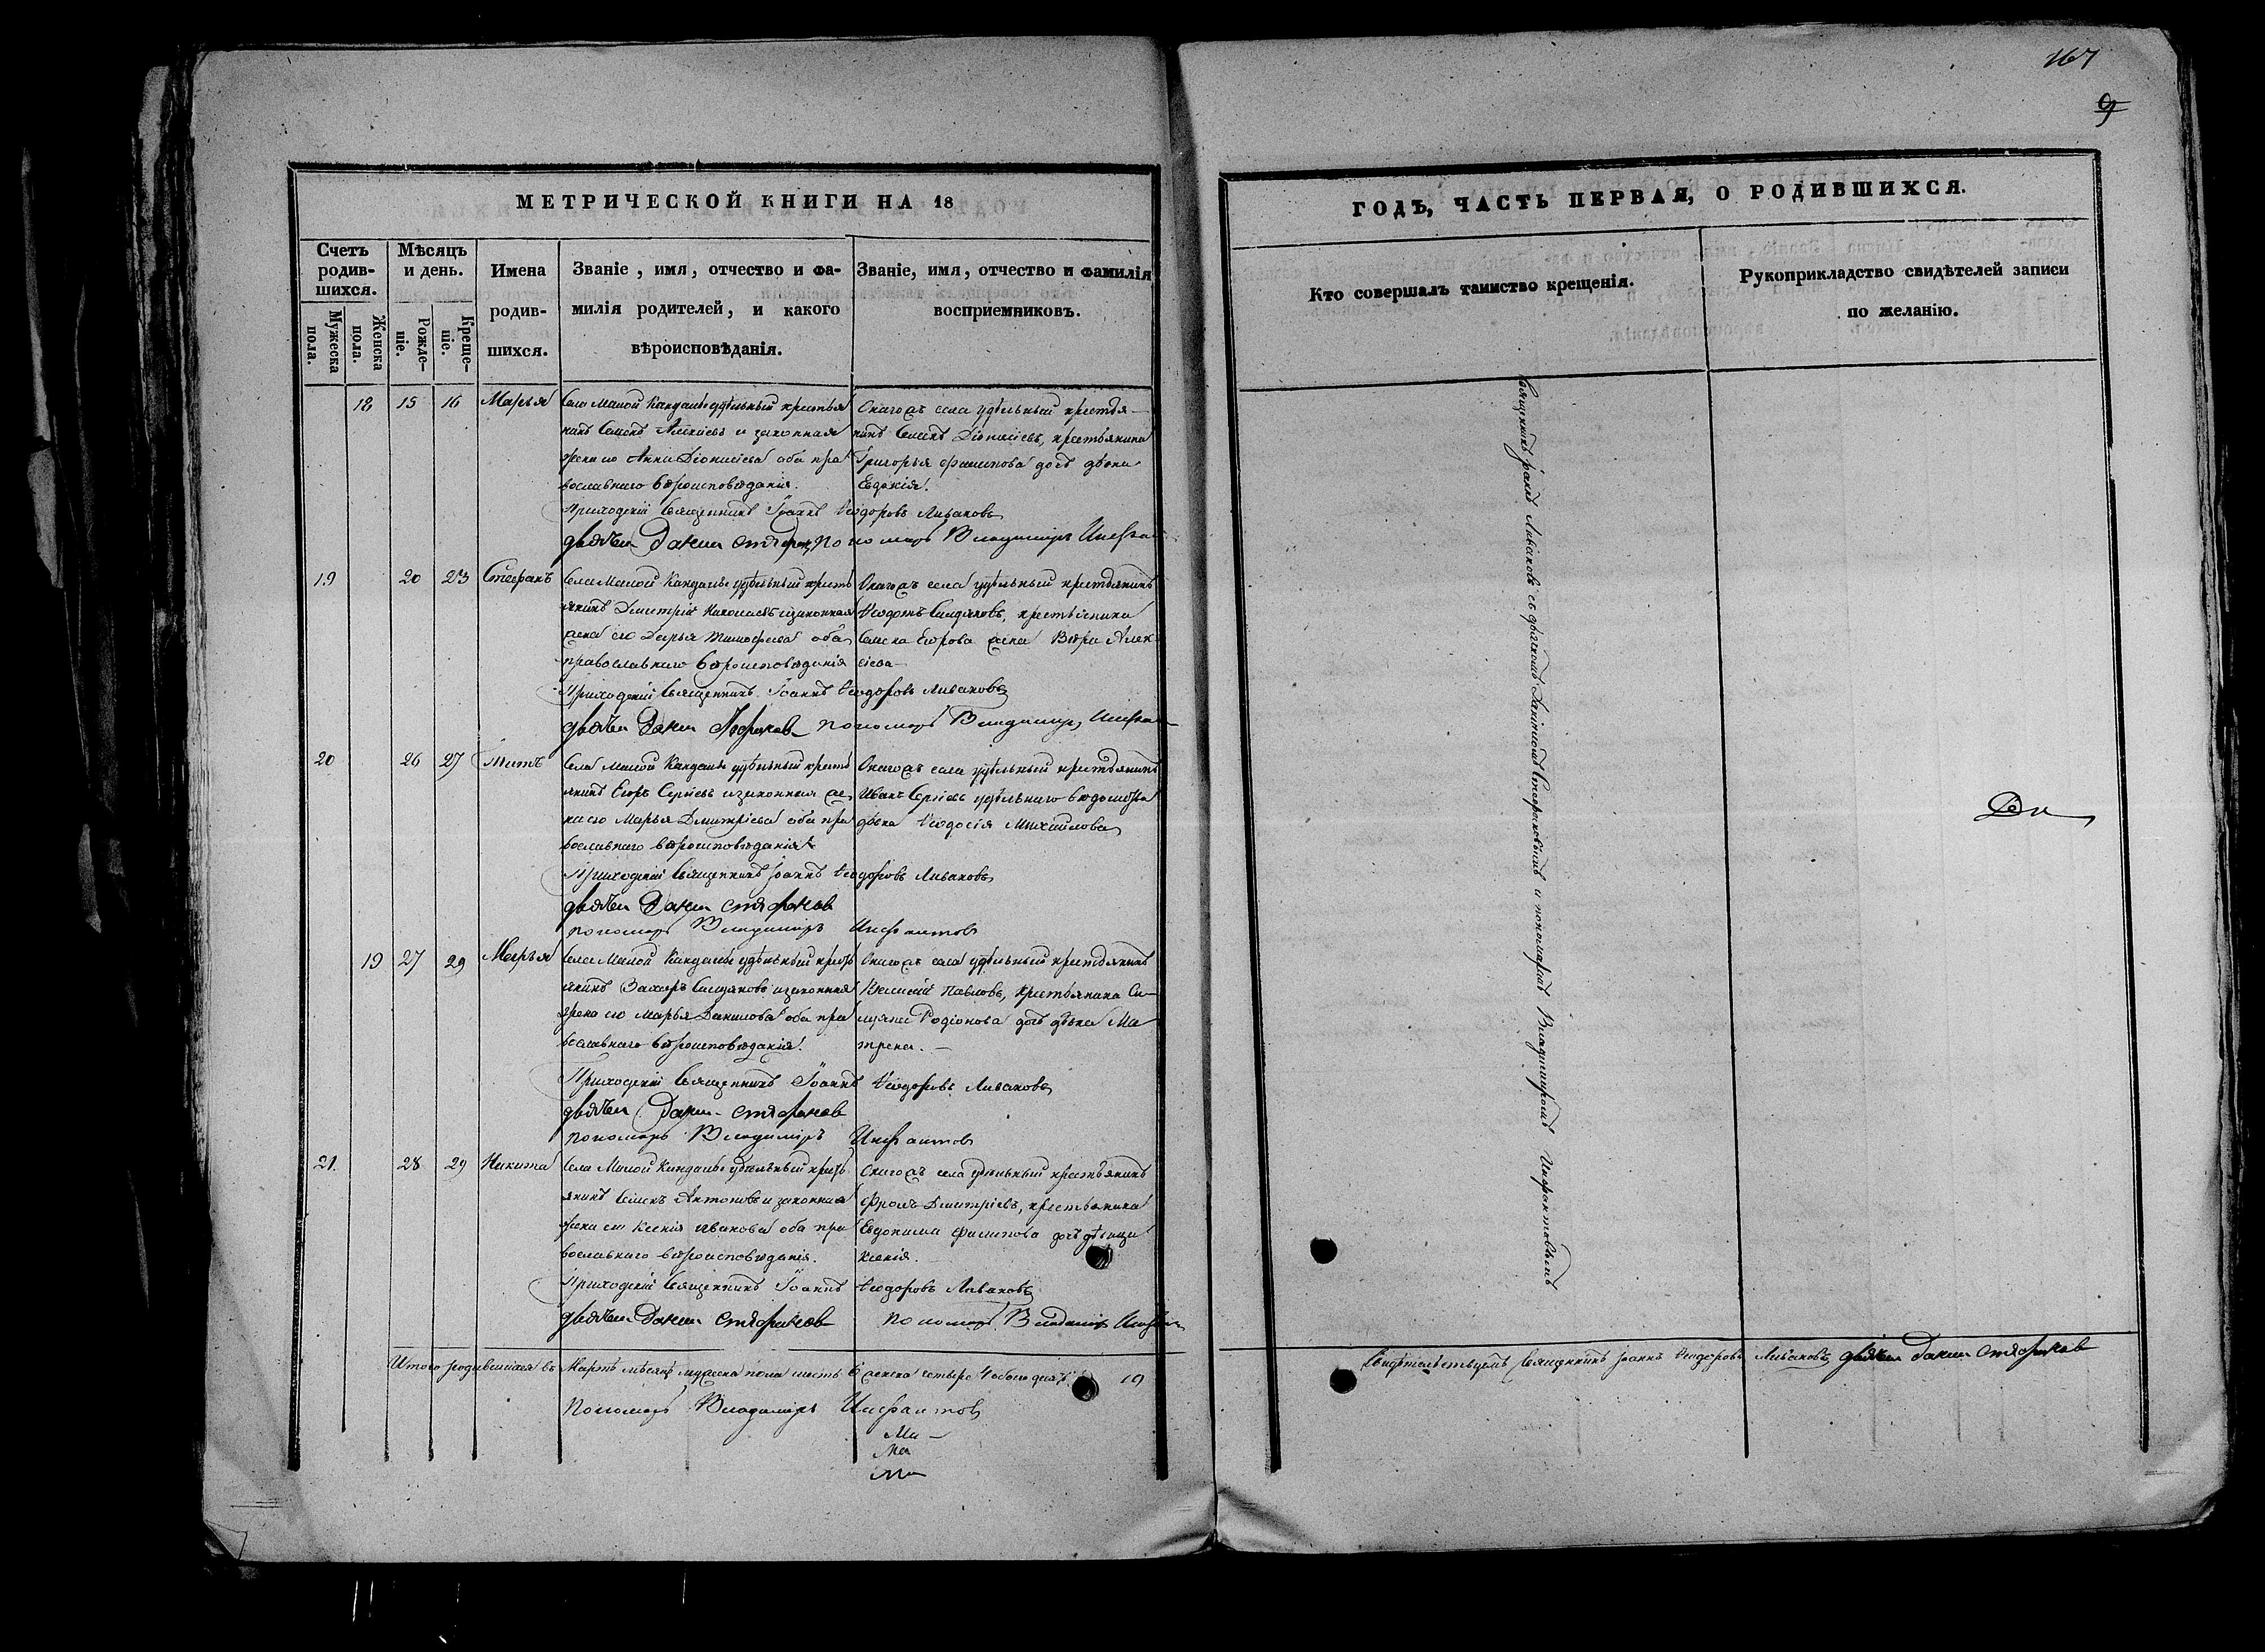 167
9
МЕТРИЧЕСКОЙ КНИГИ НА 18
ГОДЪ, ЧАСТЬ ПЕРВАЯ, О РОДИВШИХСЯ.
Счетъ родив-шихся.
Мужеска пола.
Женска пола.
Мѣсяцъ и день.
Рожде-ніе.
Креще-ніе.
Имена
родив-
шихся.
Званіе, имя, отчество и фа-
милія родителей, и какого
вѣроисповѣданія.
Званіе, имя, отчество и фамилія
воспріемниковъ.
Кто совершалъ таинство крещенія.
Рукоприкладство свидѣтелей записи
по желанію.
18 15 16 Марья
Села Малой Кандалы удѣльный крестья
нинъ Семенъ Алексѣевъ и законная
жена его Анна Діонисіева оба пра
вославнаго вѣроисповѣданія.
Онагожъ села удѣльный крестья-
нинъ Семенъ Діонисіевъ, крестьянина
Григорья Филипова дочь дѣвка
Евдокія.
Приходскій Священникъ Іоаннъ Ѳеодоровъ Ливановъ
дьячекъ Данил Стефанов Пономарь Владимиръ Инфан
19 20 23 Стефанъ
Села Малой Кандалы удѣльный кресть
янинъ Дмитрій Николаевъ и законная
жена его Дарья Тимофеева оба
православнаго вѣроисповѣданія
Онагожъ села удѣльный крестьянинъ
крестьянина
Семена Егорова жена Вѣра Алек
сіева
Приходскій Священникъ Іоаннъ Ѳеодоровъ Ливановъ
дьячекъ Данил Стефанов пономарь Владимиръ Инфан
20 26 27 Титъ
Села Малой Кандалы удѣльный кресть
янинъ Егоръ Сергѣевъ и законная же
на его Марья Дмитріева оба пра
вославнаго вѣроисповѣданія
Онагожъ села удѣльный крестьянинъ
Иванъ Сергѣевъ удѣльнаго вѣдомства
дѣвка Ѳеодосія Михайлова
Приходскій Священникъ Іоаннъ Ѳеодоровъ Ливановъ
дьячекъ Данил Стефанов
пономарь Владимиръ Инфантов
19 27 29 Марья
Села Малой Кандалы удѣльный кресть
янинъ Захаръ Симѳановъ и законная
жена его Марья Данилова оба пра
вославнаго вѣроисповѣданія.
Онагожъ села удѣльный крестьянинъ
Василій Павловъ, крестьянина Си-
Родіонова дочь дѣвка Ма
трена.
Приходскій Священникъ Іоаннъ Ѳеодоровъ Ливановъ
дьячекъ Данил Стефанов
пономарь Владимиръ Инфантов
21 28 29 Никита
Села Малой Кандалы удѣльный кресть
янинъ Семенъ Антоновъ и законная
жена его Ксенія Иванова оба пра
вославнаго вѣроисповѣданія.
Онагожъ села удѣльный крестьянинъ
Фролъ Дмитріевъ, крестьянина
Евдокима Филипова дочь дѣвица
Ксенія.
Приходскій Священникъ Іоаннъ Ѳеодоровъ Ливановъ
дьячекъ Данил Стефанов пономарь Владимиръ Инфан
Итого родившихся въ Мартѣ мѣсяцѣ мужеска пола шесть 6 женска четыре 4 обоего 10
Пономарь Владимиръ Инфантов
Ма
Ма
Ма
Священникъ Іоаннъ Ливановъ съ дьячкомъ Даніиломъ Стефановымъ и пономаремъ Владимиромъ Инфантовымъ
Священникъ Іоаннъ Ѳеодоровъ Ливановъ дьячекъ Данил Стефанов